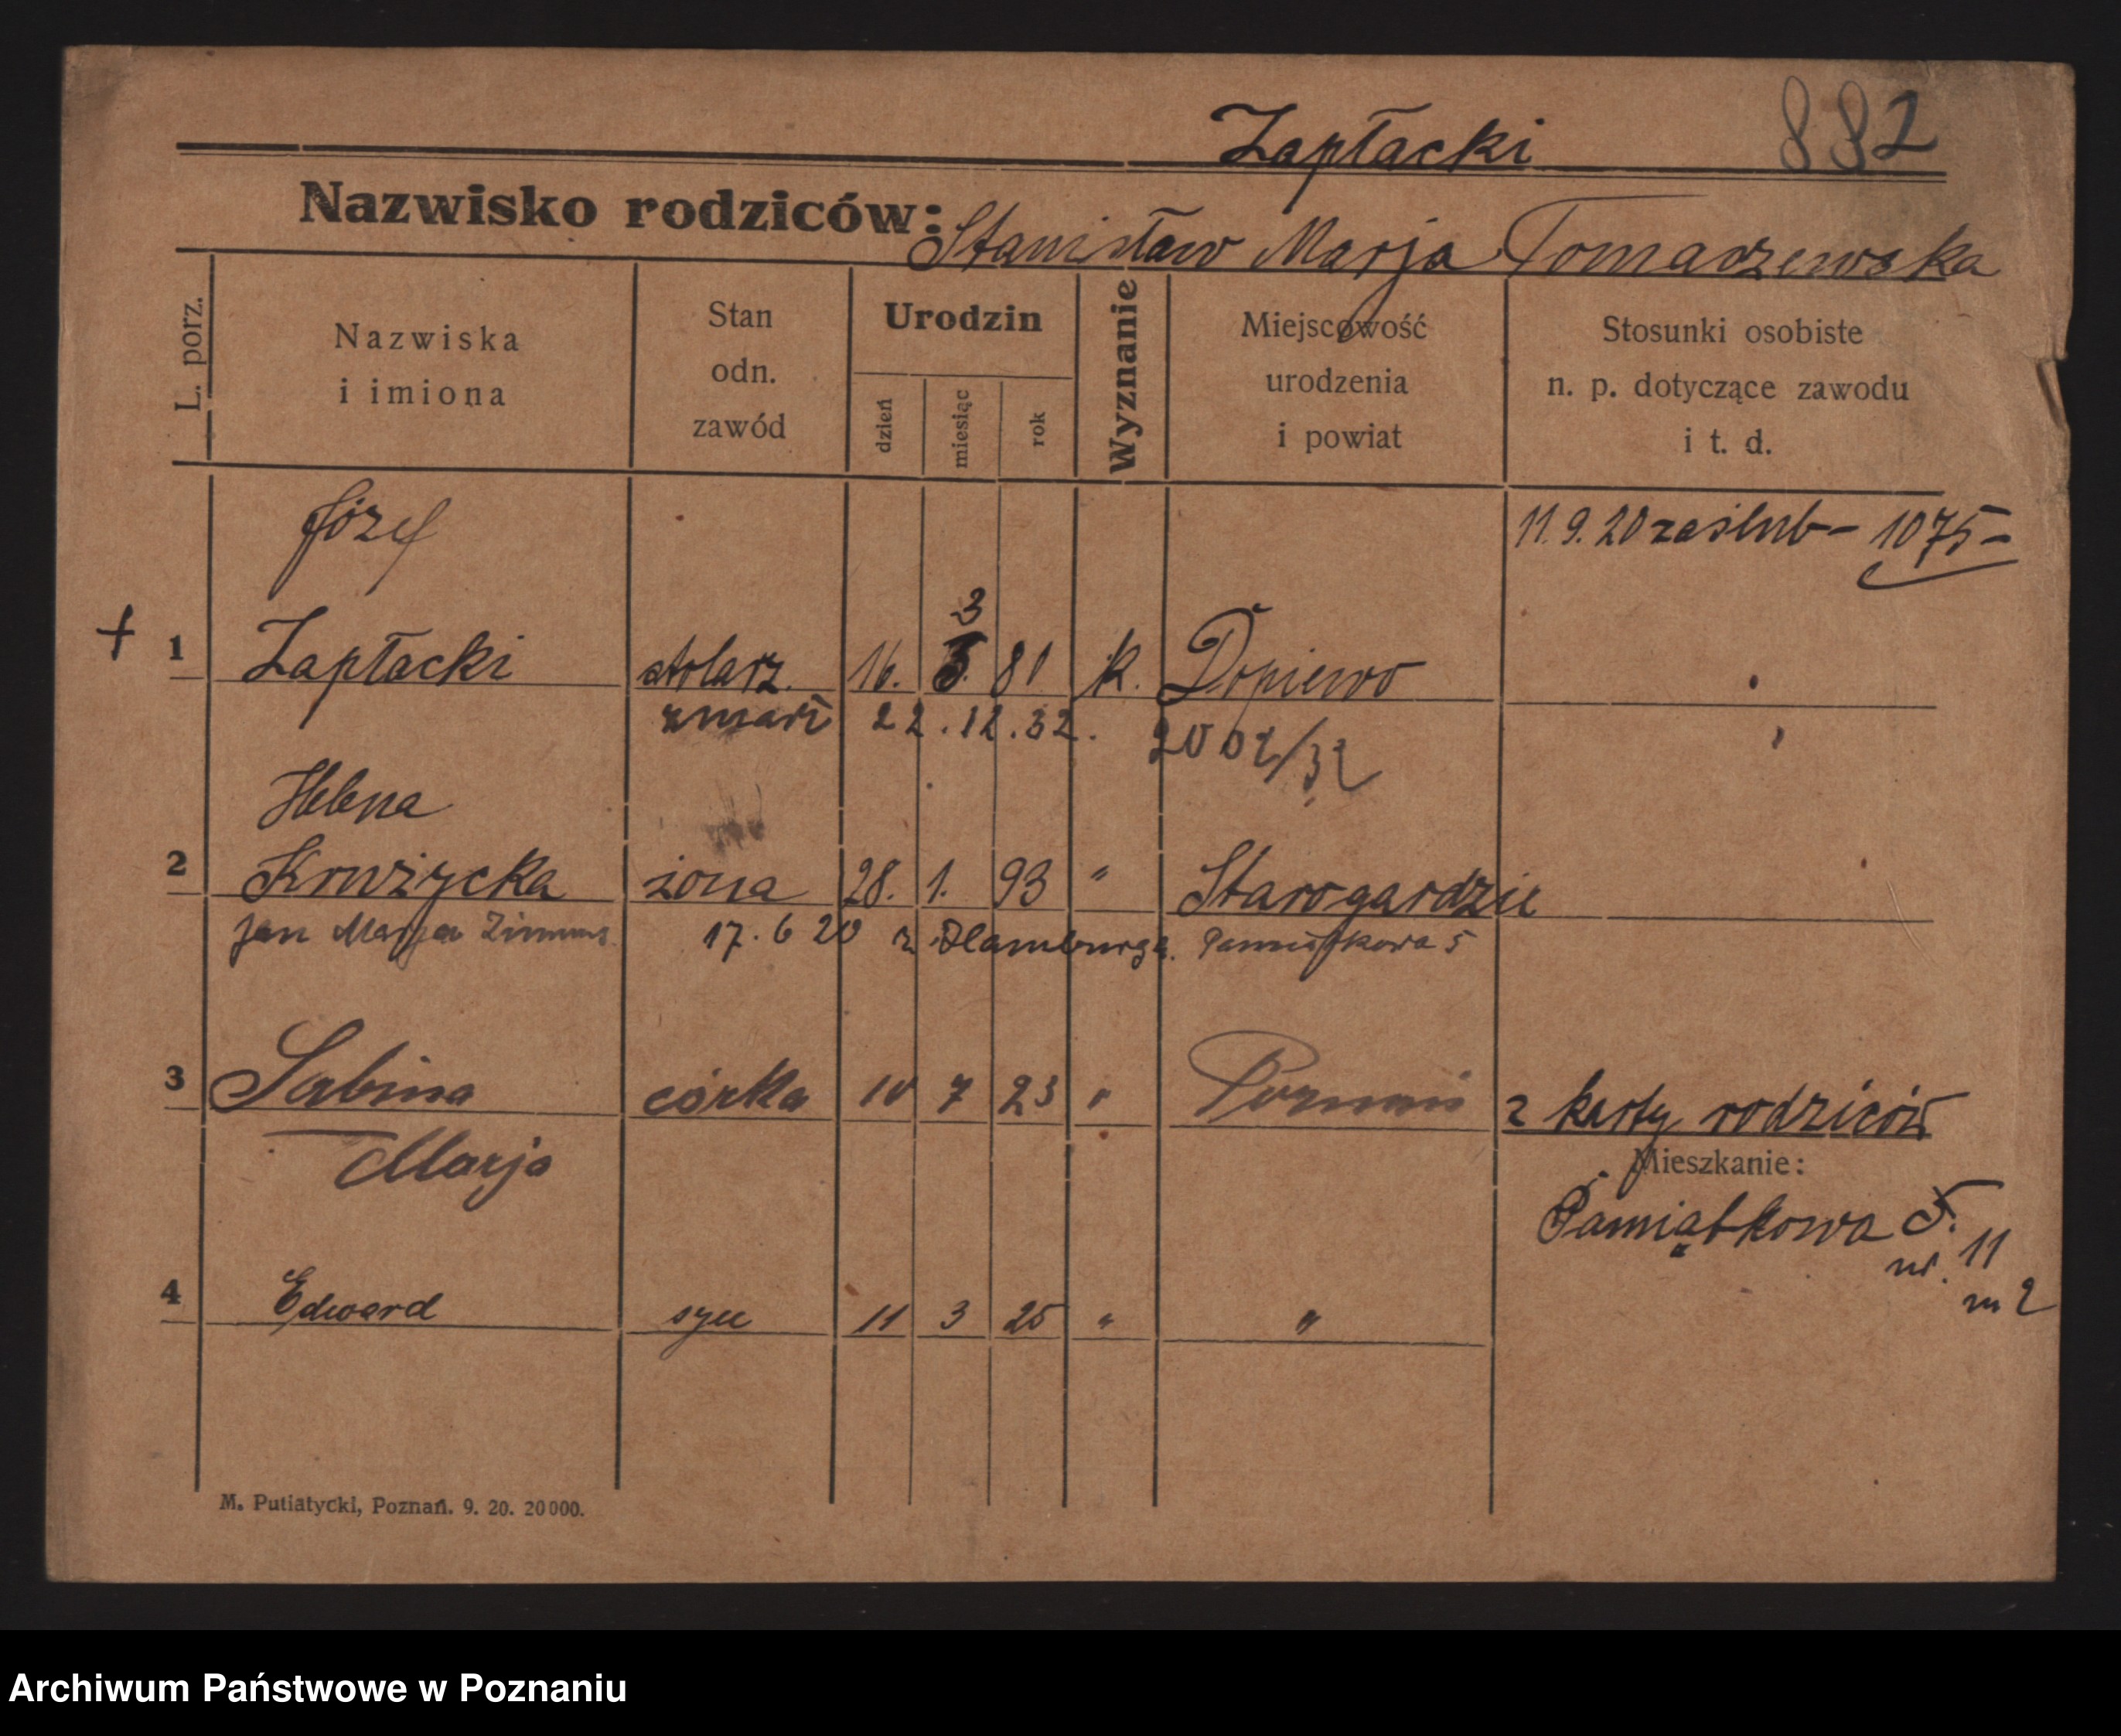 Zapłacki 882
Nazwisko rodziców: Stanisław Marja Tomaszewska
L. porz.
Nazwiska
i imiona
Stan
odn.
zawód
Urodzin
dzień
miesiąc
rok
Wyznanie
Miejscowość
urodzenia
i powiat
Stosunki osobiste
n. p. dotyczące zawodu
i t. d.
Józef
11. 9. 20 zaślub – 1075 –
3
+ 1 Zapłacki stolarz. 16. 81 k. Dopiewo
zmarł 22. 12. 32. 2002/32
Helena
2 Krużycka żona 28. 1. 93 " Starogardzie
Jan Marja 17. 6 20 z Hamburga. Pamiątkowa 5
3 Sabina córka 10 7 23 " Poznań z karty rodziców
Marja
Mieszkanie:
Pamiątkowa 5.
nr. 11
m 2
4 Edward syn 11 3 25 " "
M. Putiatycki, Poznań. 9. 20. 20000.
Archiwum Państwowe w Poznaniu